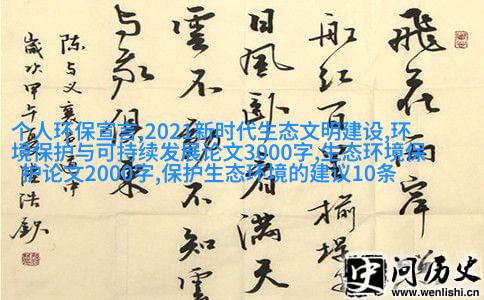 飛花兩岸
船紅百里榆堤
日風臥看滿天
雲不動不知雲
与我俱東
陈与义襄邑道中
歲次甲午
个人环保宣言,2021新时代生态文明建设,环
境保护与可持续发展论文3000字,生态环境保
护论文2000字,保护生态环境的建议10条
史问历史
www.wenlishi.cn